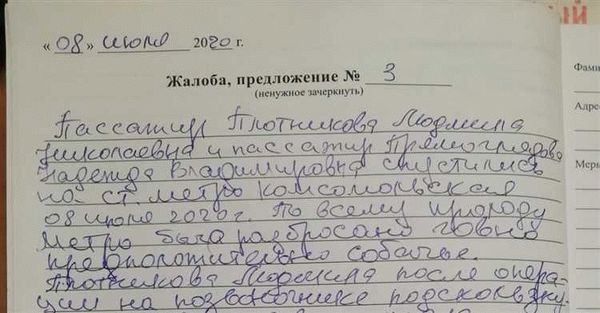 « 08 » июля 2020 г.
Жалоба, предложение № 3
(ненужное зачеркнуть)
Пассажир Плотникова Людмила
Николаевна и пассажир
Надежда Владимировна спустились
на ст. метро Комсомольская
08 июля 2020 г. По всему проходу
метро было разбросано говно
предположительно собачье.
Плотникова Людмила после опера-
ции на позвоночнике подскользну-
ый
Фами
Адре
Меры